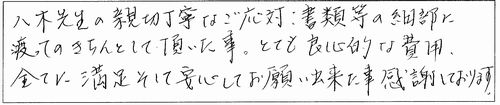 八木先生の親切丁寧なご応対:書類等の細部に
渡てのきちんとして頂いた事。とても良心的な費用、
全てに満足そして安心してお願い出来た事感謝しております